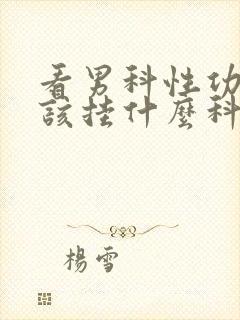 看男科性功
該挂什麼科
楊雪